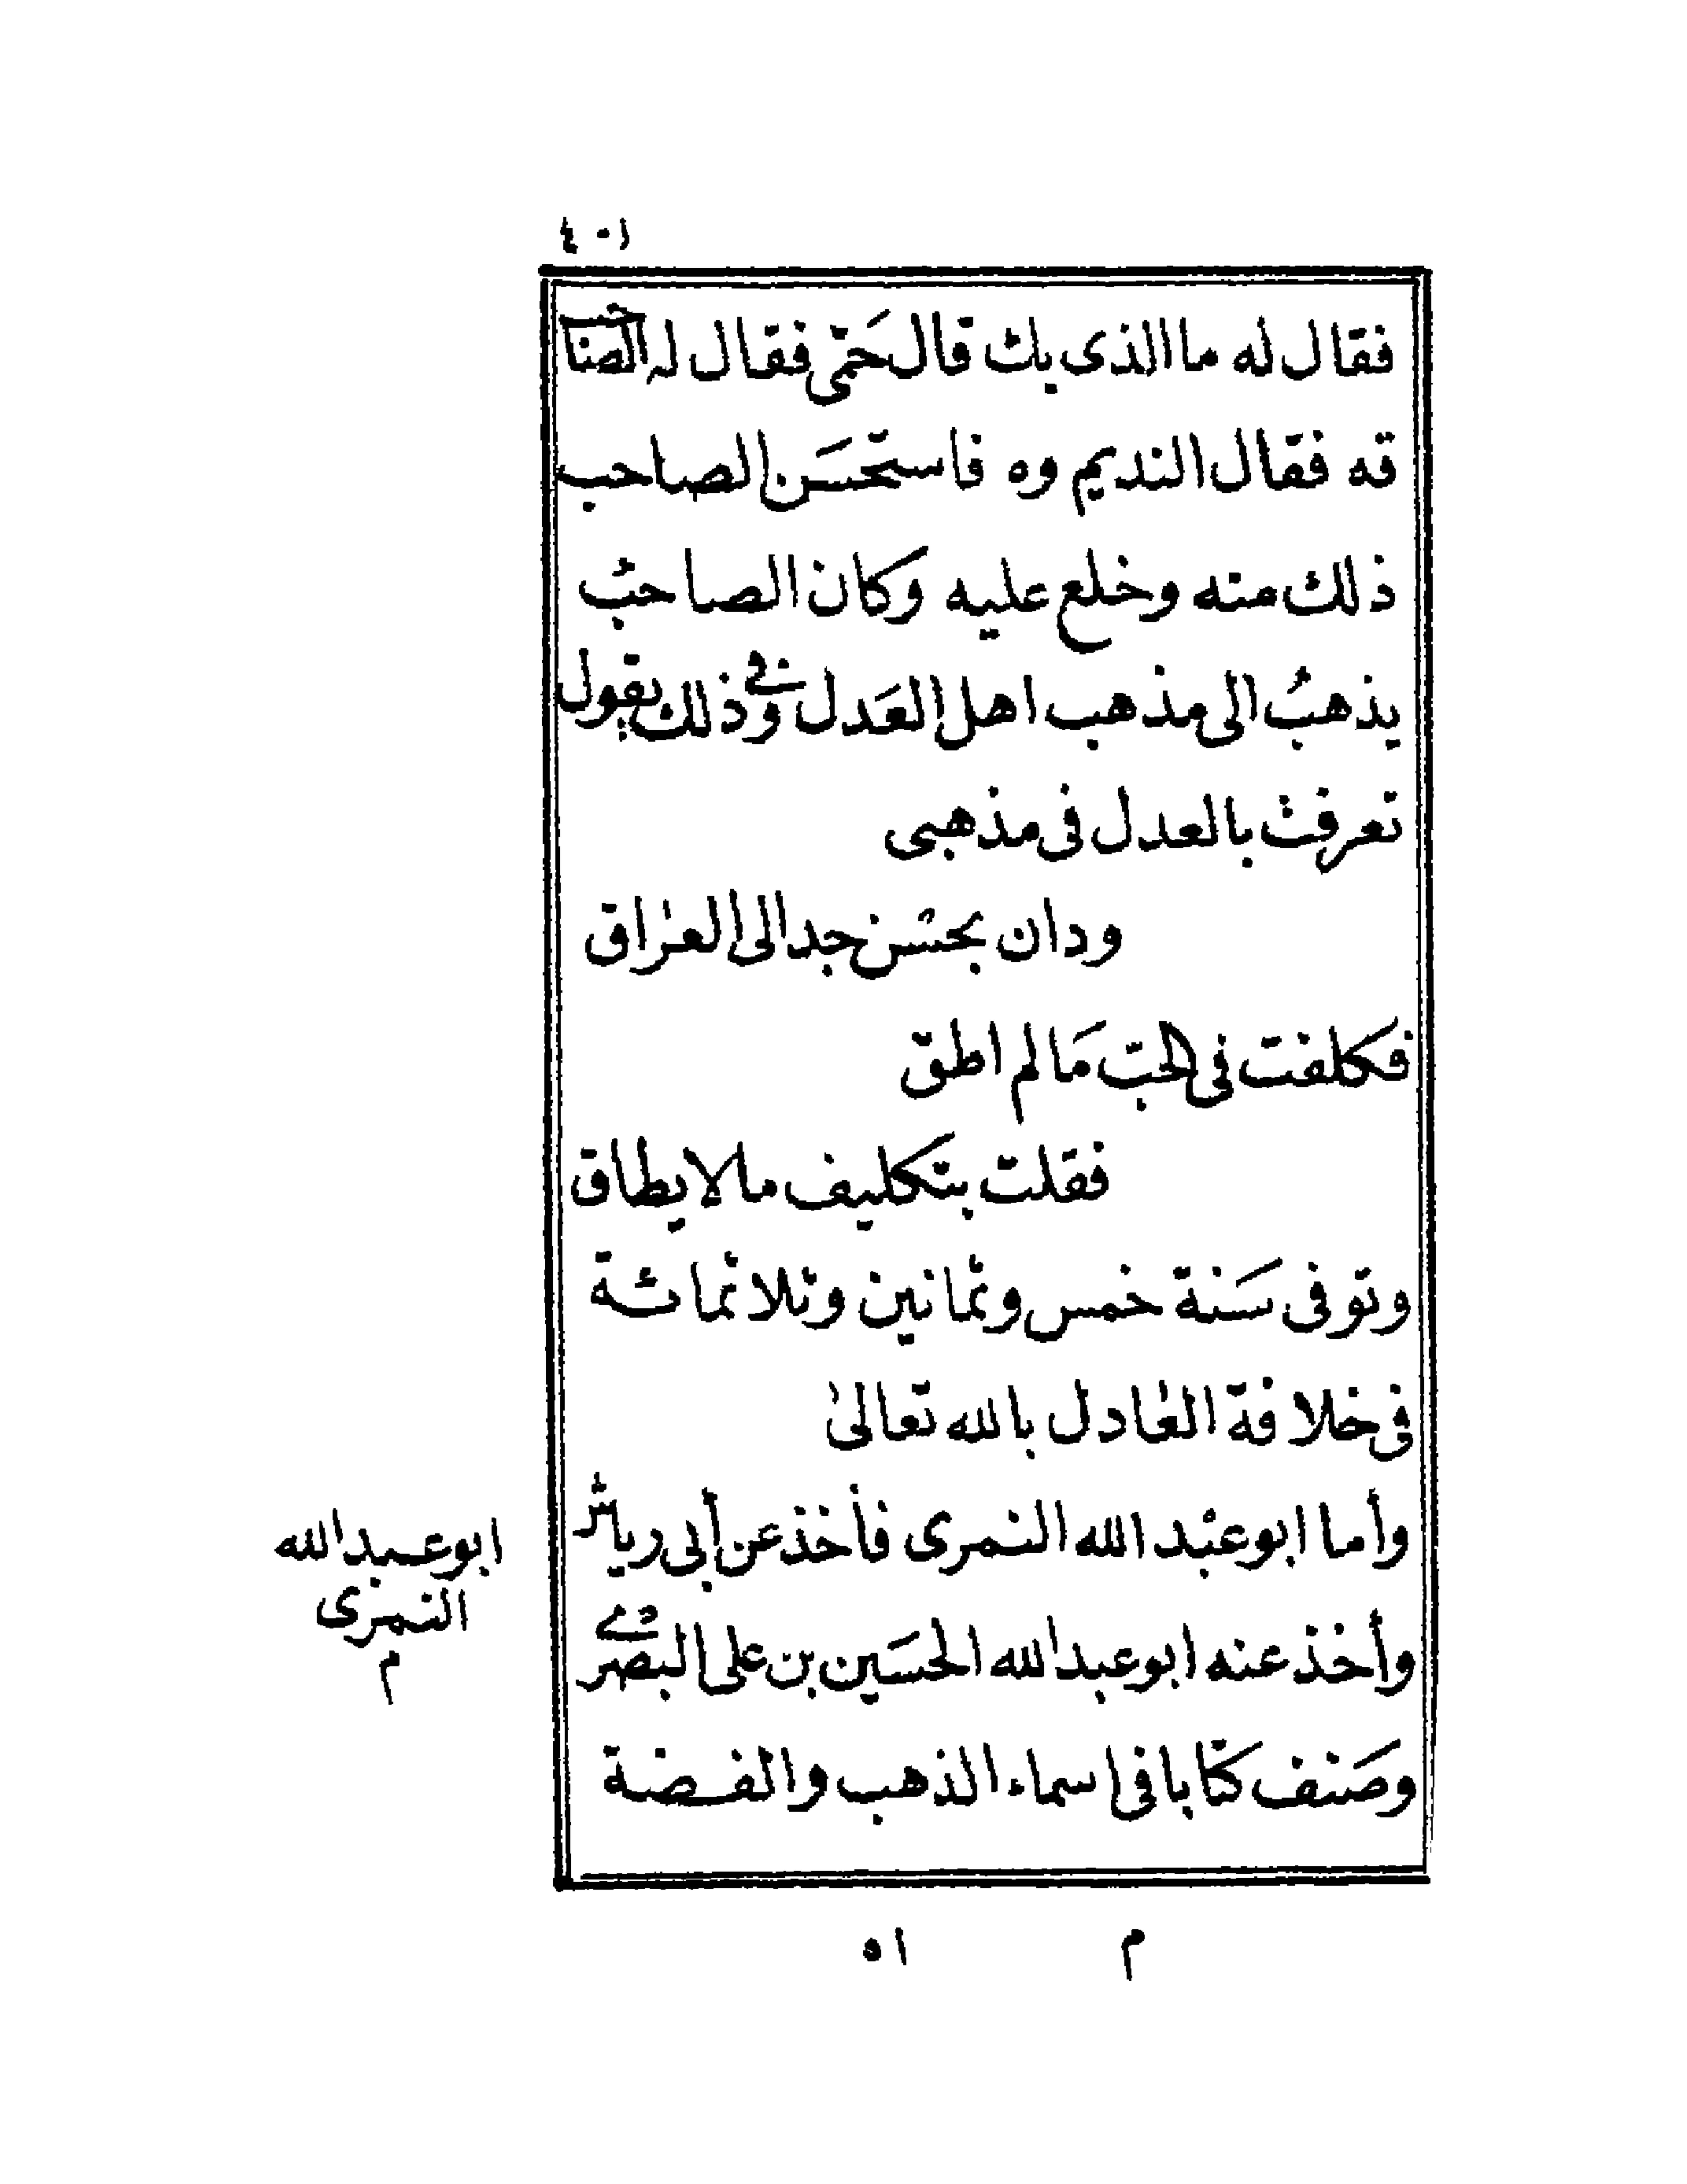 ٤٠١
فقال له ما الذى بك قال حَمّى فقال له الصاحب
قه فقال النديم وه فاستحسَن الصاحب
ذلك منه وخلع عليه وكان الصاحبُ
يذهبُ الى مذهب اهل العَدل وفى ذلك يقول
تعرفت بالعدل فى مذهبى
ودان بحسْن جدالى العراق
فكلفت فى الحبّ مَا لم اطق
فقلت بتكليف ما لا يطاق
وتوفى سَنة خمس وثمانين وثلاثمائة
فى خلافة العادل بالله تعالى
وأما ابو عبْد الله النمرى فأخذ عن أبى رياش
وأخذ عنه ابو عبد الله الحسَين بن على البصرى
وصَنف كتابا فى اسماء الذهب والفضة
ابو عبد الله
النمرى
م
م ٥١